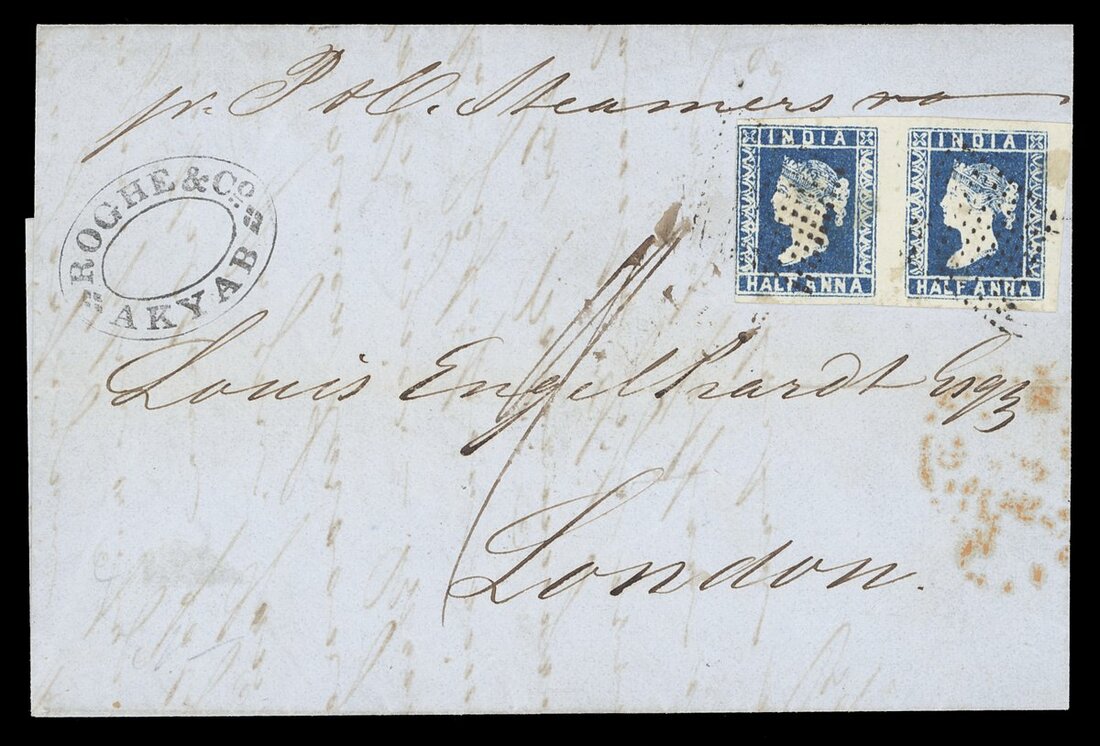 pr. P & O. Steamers
INDIA
HALF ANNA
INDIA
HALF ANNA
ROGHE & Co.
AKYAB
Louis Engelhardt Esqr
London.